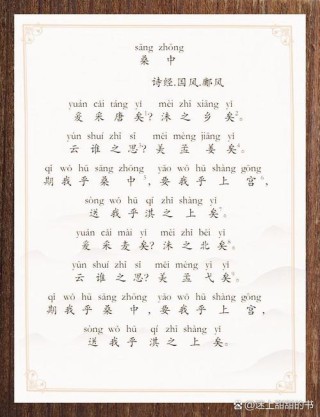 sāng zhōng
桑 中
诗经.国风.鄘风
yuán cǎi táng yǐ mèi zhī xiāng yǐ
爰 采 唐 矣? 沬 之 乡 矣²。
yún shuí zhī sī měi mèng jiāng yǐ
云 谁 之 思? 美 孟 姜 矣⁴。
qī wǒ hū sāng zhōng yāo wǒ hū shàng gōng
期 我 乎 桑 中⁵, 要 我 乎 上 宫⁶,
sòng wǒ hū qí zhī shàng yǐ
送 我 乎 淇 之 上 矣⁷。
yuán cǎi mài yǐ mèi zhī běi yǐ
爰 采 麦 矣? 沬 之 北 矣⁸。
yún shuí zhī sī měi mèng yì yǐ
云 谁 之 思? 美 孟 弋 矣⁹。
qī wǒ hū sāng zhōng yāo wǒ hū shàng gōng
期 我 乎 桑 中, 要 我 乎 上 宫,
sòng wǒ hū qí zhī shàng yǐ
送 我 乎 淇 之 上 矣。
@迷上甜甜的书